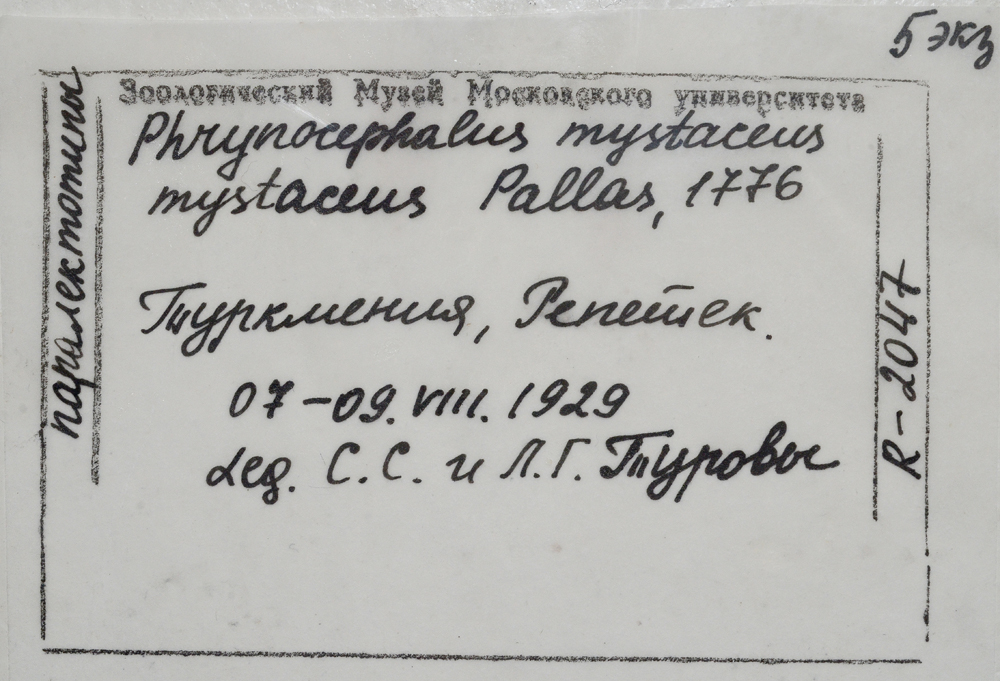 5 экз
Зоологический Музей Московского университета
Phrynocephalus mystaceus
mystaceus Pallas, 1776
Туркмения, Репетек.
07-09.VIII.1929
Leg. С.С. и Л.Г. Туровы
паралектотипы
R-2047